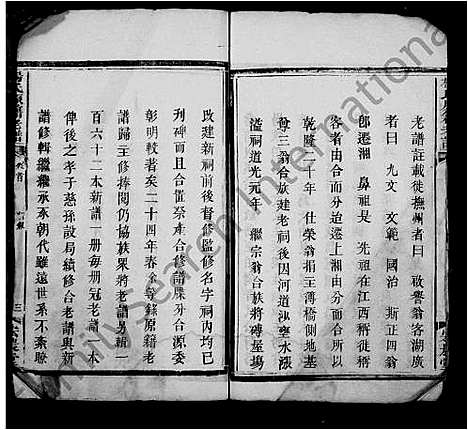 老譜註載徙撫州者曰 啟譽翁客湖廣
者曰 九文 文範 國治 斯正四翁
即遷湘 鼻祖是 先祖在江西稱徙稱
客者由合而分迨遷上湘由分而合所以
乾隆二十年 仕榮翁捐主薄橋側地基
尊三翁合族建老祠後因河道沙壅水漲
溢祠道光元年 繼宗翁合族將磚屋塲
改建新祠前後督修監修名字祠內均已
列碑而且合置祭產合修譜牒外合享祠
彰明較著矣二十四年春予等錄原籍老
譜歸主修捧閱仍協族眾將老譜另輯一
百六十二本新譜一册每册冠老譜一本
俾後之孝子慈孫設局續修合老譜與新
譜修輯繼繼承承朝代雖遠世系不紊瞭
卷首
三
Family Search International